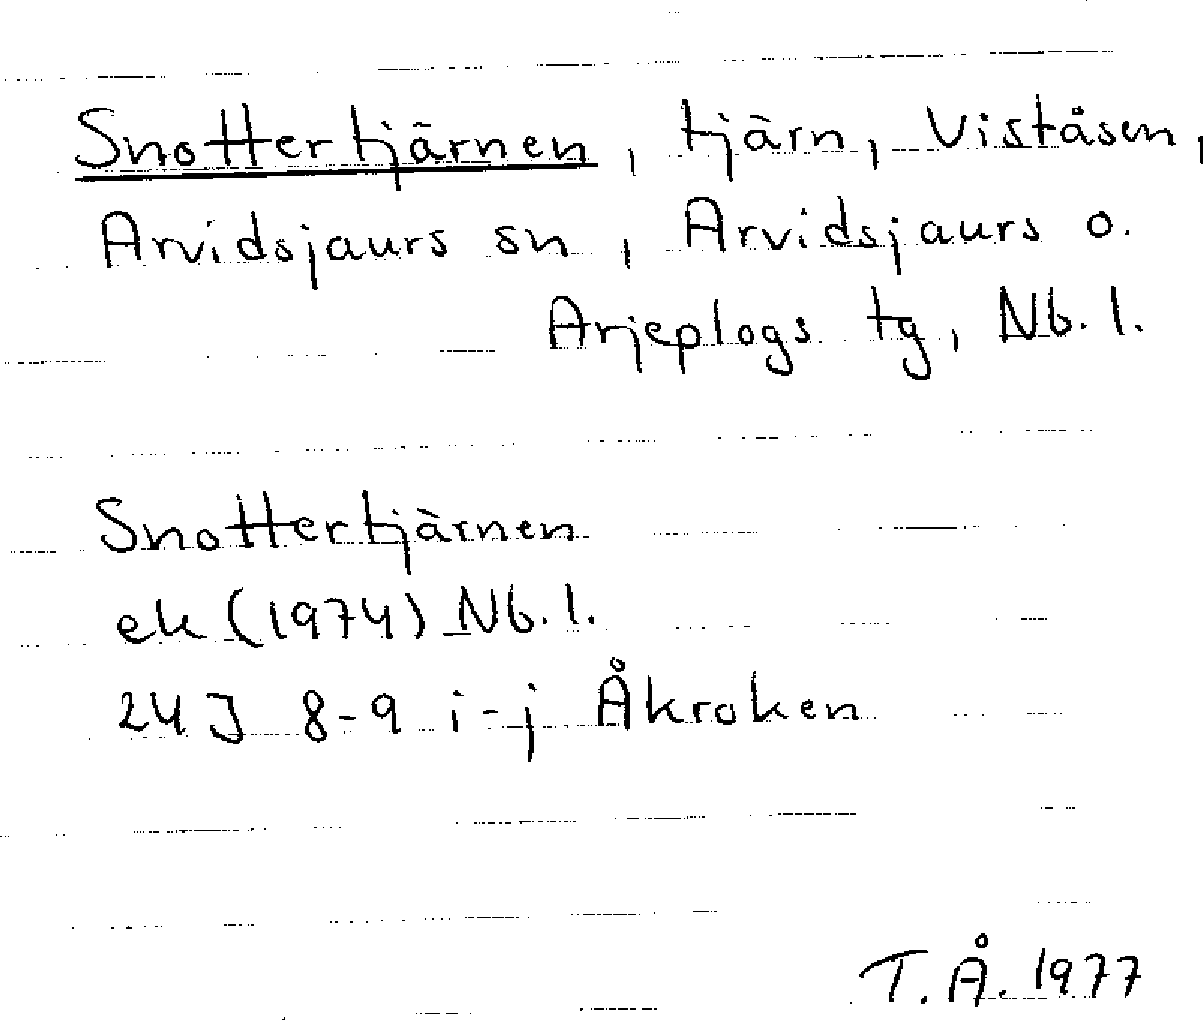 Snottertjärnen, tjärn, Viståsen,
Arvidsjaurs sn, Arvidsjaurs o.
Arjeplogs tg, Nb. l.
Snottertjärnen
ek (1974) Nb. l.
24 J 8-9 i-j Åkroken
T. Å. 1977